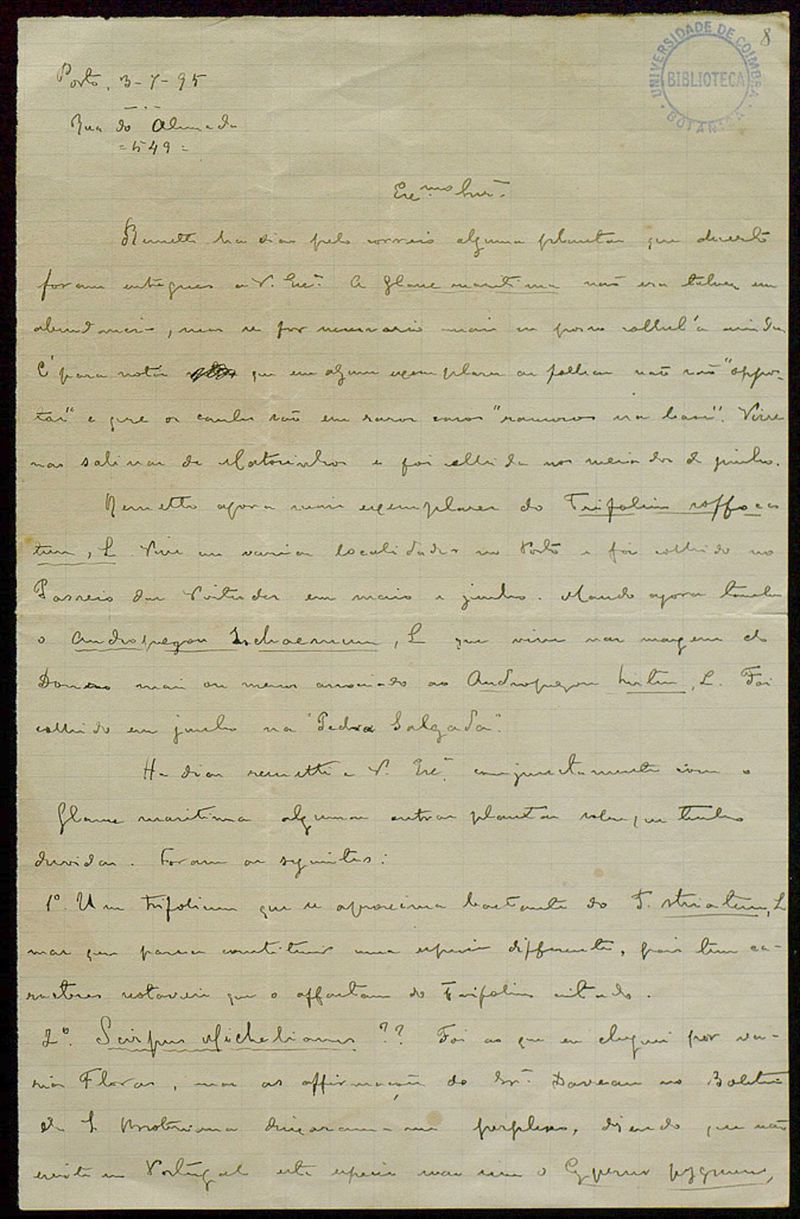 8
UNIVERSIDADE DE COIMBRA
BIBLIOTECA
BOTANICA
Porto, 3-7-95
Rua do Almada
=549=
Exc.mo Snr.
Remetti ha dias pelo correio algumas plantas que decerto
foram entregues a V. Exc.ª A Glaux maritima não era talvez em
abundancia, mas se for necessario mais eu posso colhel'a ainda
É para notar que em alguns exemplares as folhas não são "oppos-
tas" e que os caules são em raros casos "ramosos na base". Vive
nas salinas de Matosinhos e foi colhida nos meiados de junho.
Remetto agora mais exemplares do Trifolium suffoca
tum, L. Vive em varias localidades no Porto e foi colhido no
Passeio das Virtudes em maio e junho. Mando agora tambem
o Andropogon Ischaemum, L que vive nas margens do
Douro mais ou menos associado ao Andropogon hirtum, L. Foi
colhido em junho na "Pedra Salgada".
Ha dias remetti a V. Exc.ª conjunctamente com a
Glaux maritima algumas outras plantas sobre que tenho
duvidas. Foram as seguintes:
1º. Um Trifolium que se aproxima bastante do T. striatum, L
mas que parece constituir uma especie differente, pois tem ca-
racteres notaveis que o affastam do Trifolium citado.
2º. Scirpus Michelianus?? Foi ao que eu cheguei por va-
rias Floras, mas as affirmações do Sr. Daveau no Boletim
da S. Broteriana deixaram-me perplexo, dizendo que não
existe em Portugal esta especie mas sim o Cyperus pygmaeus,